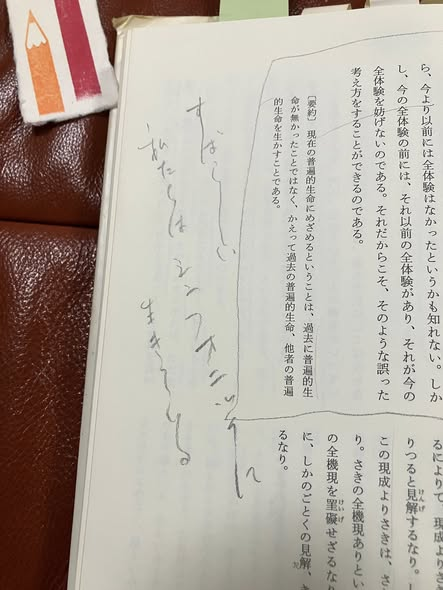 ら、今より以前には全体験はなかったというかも知れない。しか
し、今の全体験の前には、それ以前の全体験があり、それが今の
全体験を妨げないのである。それだからこそ、そのような誤った
考え方をすることができるのである。
〔要約〕 現在の普遍的生命にめざめるということは、過去に普遍的生
命が無かったことではなく、かえって過去の普遍的生命、他者の普遍
的生命を生かすことである。
るによりて、現成よりさき
りつると見解するなり。し
けんげ
この現成よりさきは、さ
り。さきの全機現ありとい
の全機現を罣礙せざるなり
けいげ
に、しかのごとくの見解、き
るなり。
すばらしい
私たちは シンフォニー
生きている